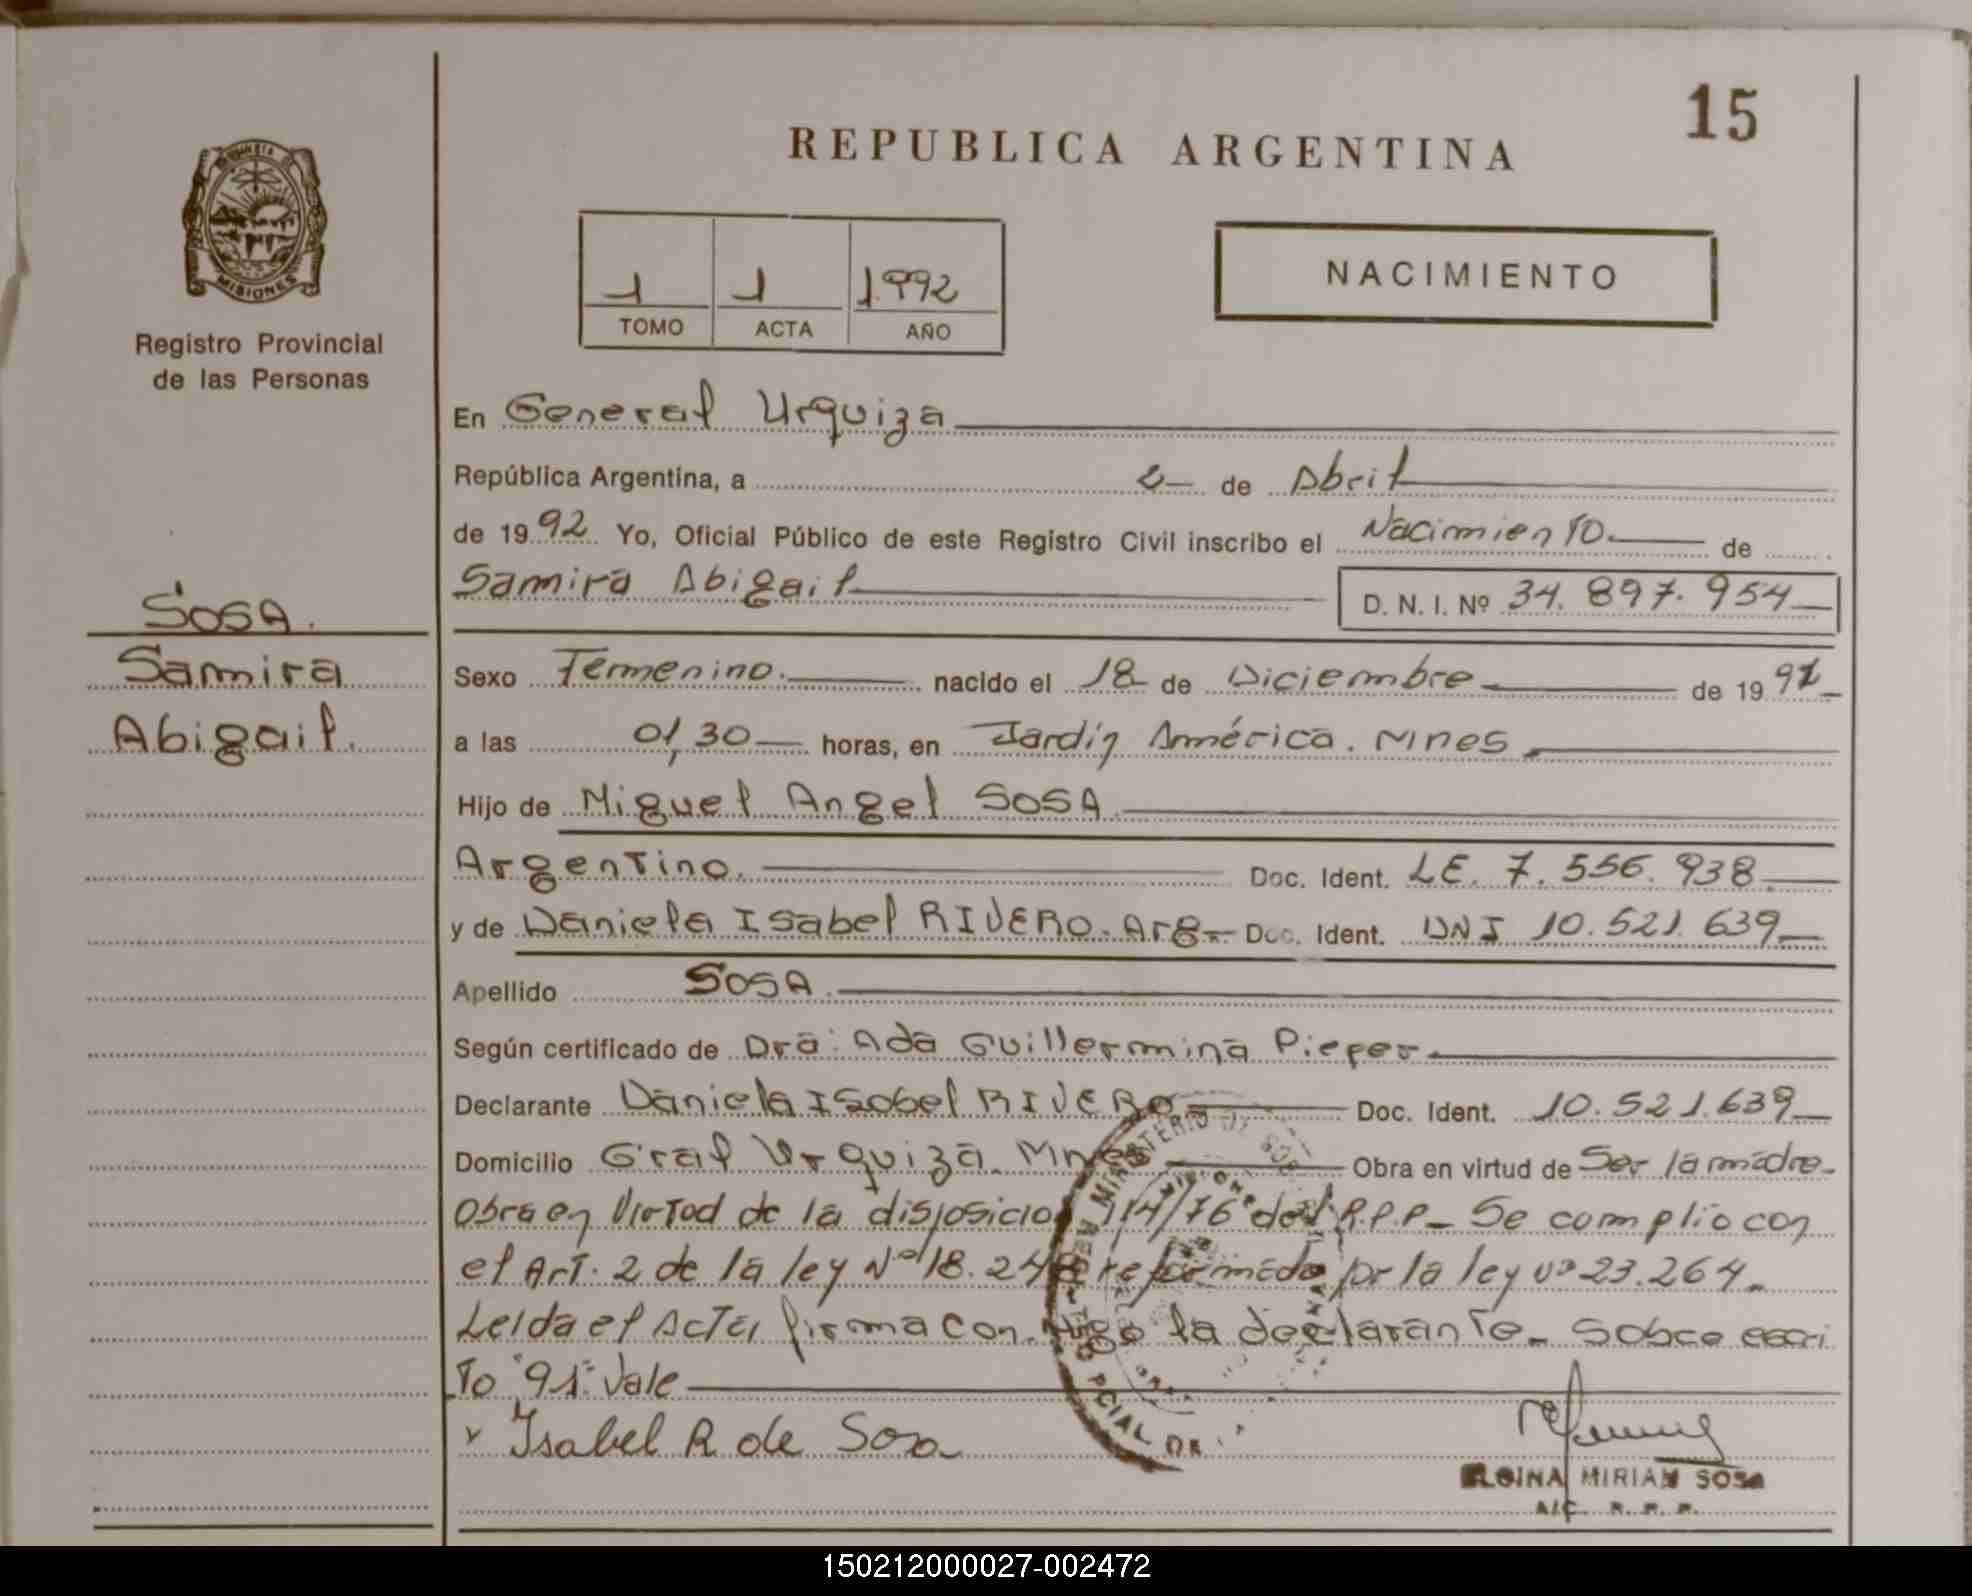 15
REPUBLICA ARGENTINA
MISIONES
Registro Provincial
de las Personas
1 1 1.992
TOMO ACTA AÑO
NACIMIENTO
En General Urquiza
República Argentina, a 2 de Abril
de 1992 Yo, Oficial Público de este Registro Civil inscribo el Nacimiento. de
Samira Abigail D. N. I. Nº 34.897.954
SOSA.
Samira
Abigail.
Sexo Femenino. nacido el 18 de Diciembre de 1991
a las 01,30 horas, en Jardín América. Mnes
Hijo de Miguel Angel SOSA
Argentino. Doc. Ident. LE. 7.556.938
y de Daniela Isabel RIVERO. Arg. Doc. Ident. DNI 10.521.639
Apellido SOSA.
Según certificado de Dra: Ada Guillermina Pieper
Declarante Daniela Isabel RIVERO Doc. Ident. 10.521.639
Domicilio Gral Urquiza. Mnes Obra en virtud de Ser la madre-
Obra en Virtud de la disposicion 114/76 del R.P.P- Se complio con
el Art. 2 de la ley Nº 18.248 reformada por la ley nº 23.264.
Leida el Acta firma con-migo la declarante- Sobre escri
To "91" Vale
Isabel R de Sosa
MIRIAM SOSA
A/C R. P. P.
150212000027-002472